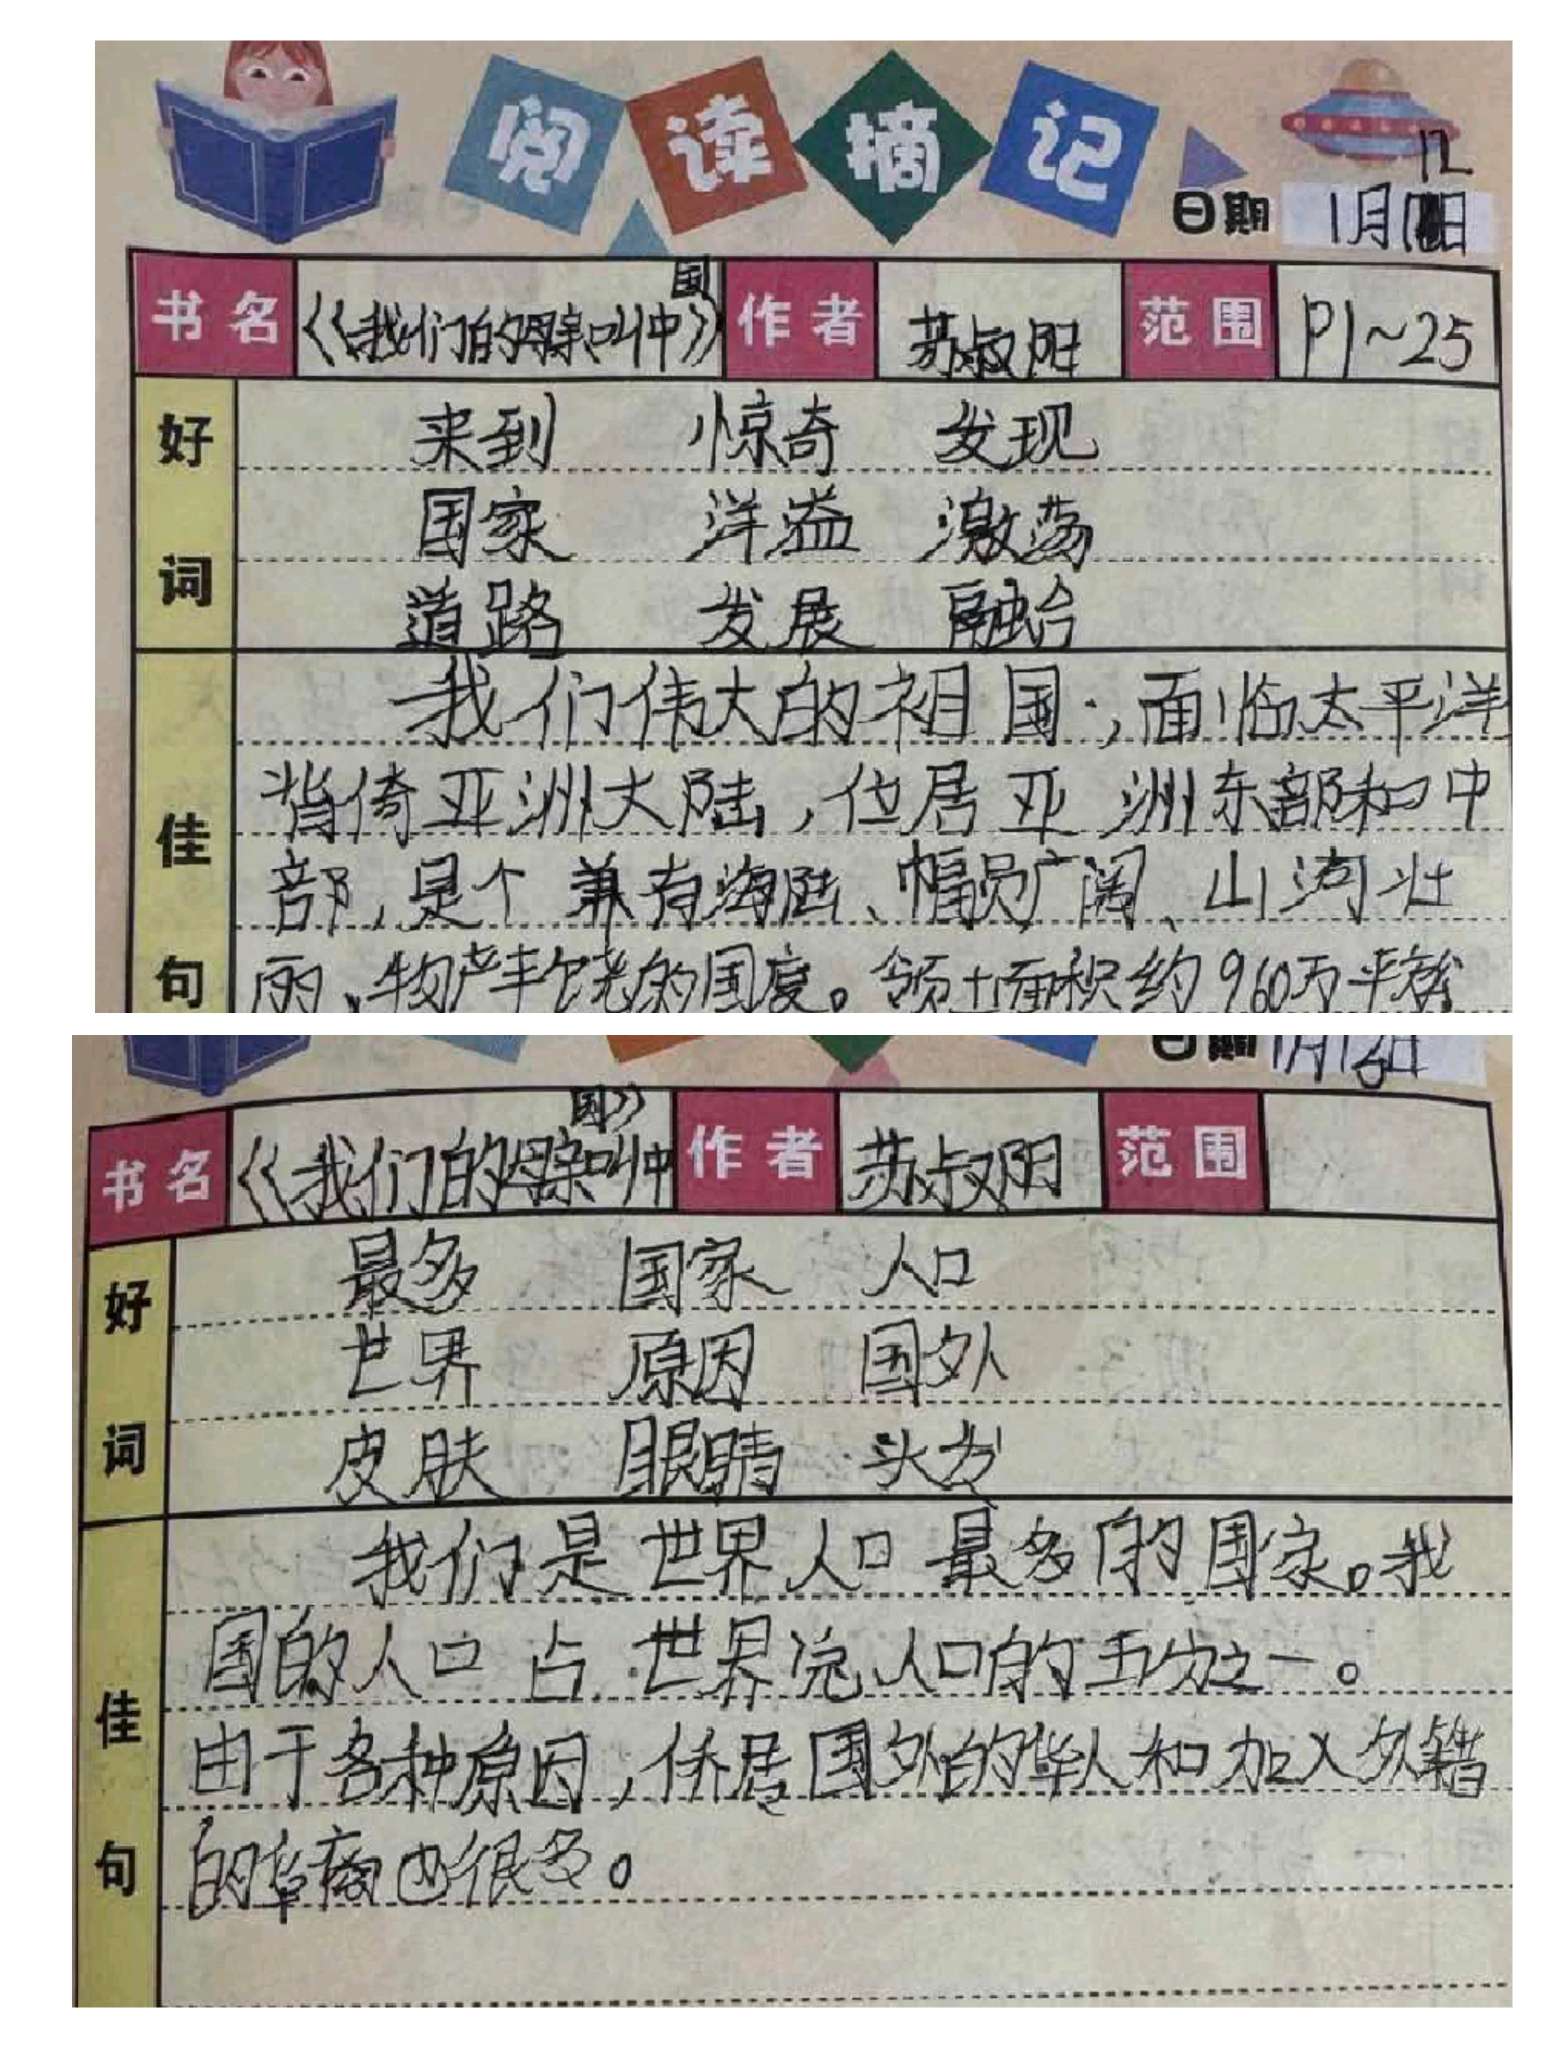 阅读摘记
12
日期 1月日
书名 《我们的母亲叫中国》 作者 苏叔阳 范围 P1~25
好词
来到 惊奇 发现
国家 洋溢 激荡
道路 发展 融合
佳句
我们伟大的祖国,面临太平洋
背倚亚洲大陆,位居亚洲东部和中
部,是个兼有海陆、幅员广阔、山河壮
丽、物产丰饶的国度。领土面积约960万平
日期 1月12日
书名 《我们的母亲叫中国》 作者 苏叔阳 范围
好词
最多 国家 人口
世界 原因 国外
皮肤 眼睛 头发
佳句
我们是世界人口最多的国家。我
国的人口占世界总人口的五分之一。
由于各种原因,侨居国外的华人和加入外籍
的华裔也很多。